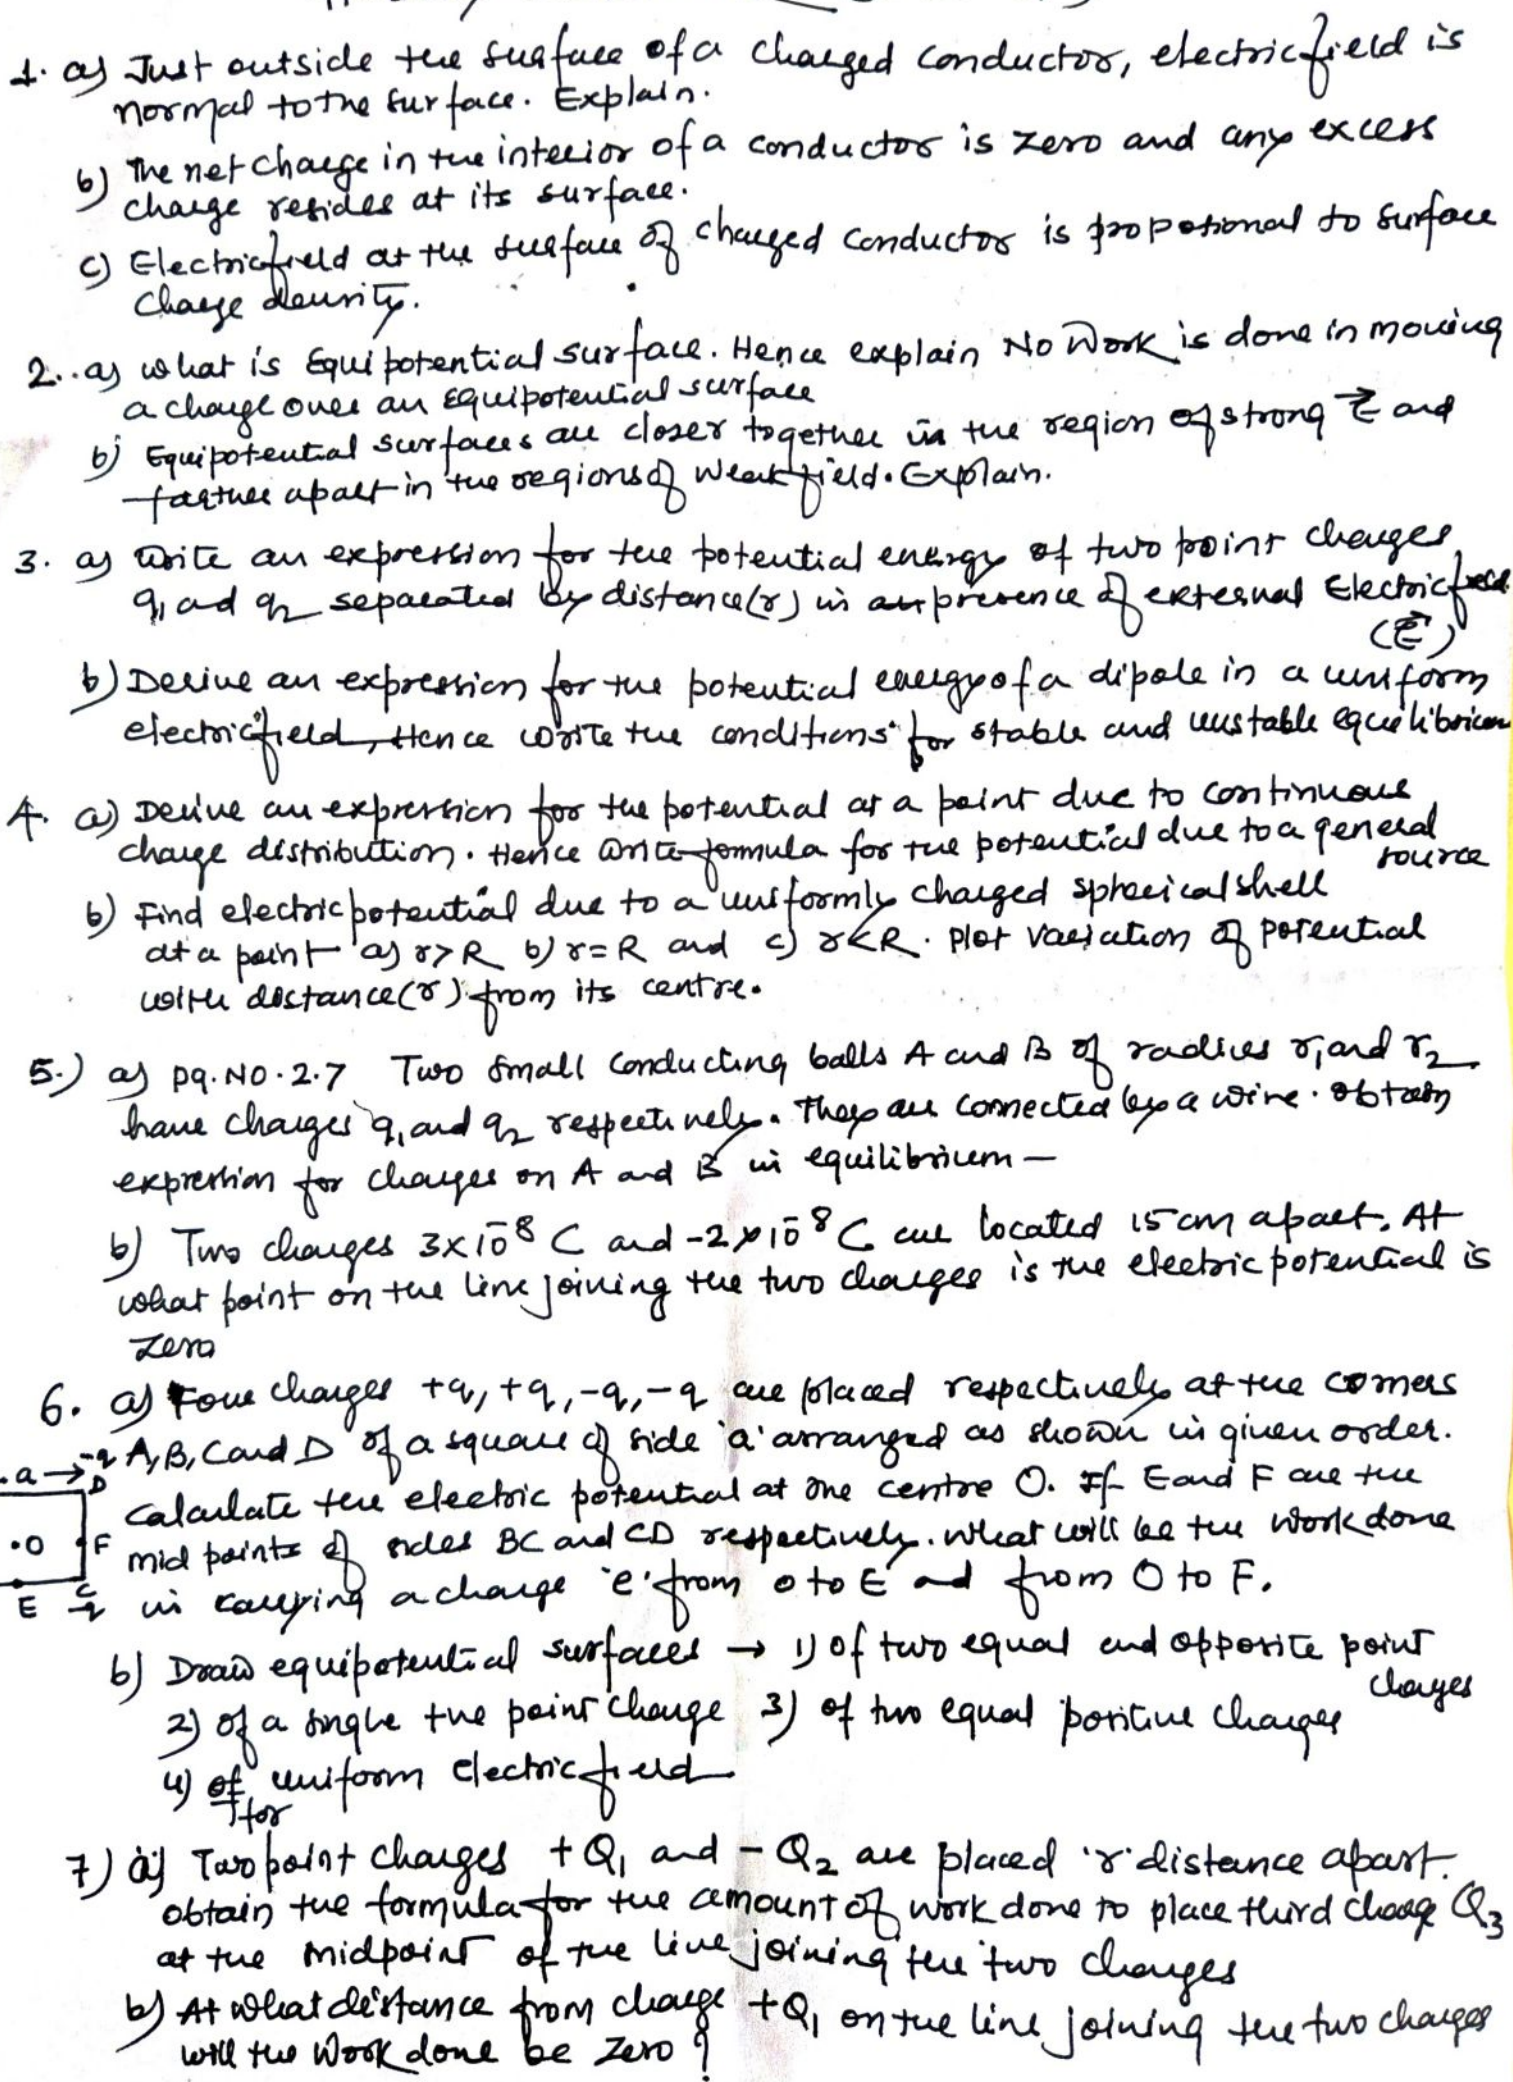 1. a) Just outside the surface of a charged conductor, electric field is
normal to the surface. Explain.
b) The net charge in the interior of a conductor is zero and any excess
charge resides at its surface.
c) Electric field at the surface of charged conductor is propotional to surface
charge density.
2. a) what is Equipotential surface. Hence explain No Work is done in moving
a charge over an equipotential surface
b) Equipotential surfaces are closer together in the region of strong E⃗ and
farther apart in the regions of weak field. Explain.
3. a) Write an expression for the potential energy of two point charges
q₁ and q₂ separated by distance (r) in presence of external Electric field
(E⃗)
b) Derive an expression for the potential energy of a dipole in a uniform
electric field, Hence write the conditions for stable and unstable equilibrium
4. a) Derive an expression for the potential at a point due to continuous
charge distribution. Hence write formula for the potential due to a general
source
b) Find electric potential due to a uniformly charged spherical shell
at a point a) r>R b) r=R and c) r<R. Plot variation of potential
with distance (r) from its centre.
5.) a) pg. NO. 2.7 Two small conducting balls A and B of radius r₁ and r₂
have charges q₁ and q₂ respectively. They are connected by a wire. obtain
expression for charges on A and B in equilibrium —
b) Two charges 3×10⁻⁸ C and -2×10⁻⁸ C are located 15 cm apart. At
what point on the line joining the two charges is the electric potential is
zero
6. a) Four charges +q, +q, -q, -q are placed respectively at the corners
A, B, C and D of a square of side 'a' arranged as shown in given order.
Calculate the electric potential at the centre O. If E and F are the
mid points of sides BC and CD respectively. What will be the work done
in carrying a charge 'e' from O to E and from O to F.
a → -q
D
•O F
E C
-q
b) Draw equipotential surfaces → 1) of two equal and opposite point
charges
2) of a single +ve point charge 3) of two equal positive charges
4) of uniform electric field
for
7) a) Two point charges +Q₁ and -Q₂ are placed 'r' distance apart.
obtain the formula for the amount of work done to place third charge Q₃
at the midpoint of the line joining the two charges
b) At what distance from charge +Q₁ on the line joining the two charges
will the work done be zero?